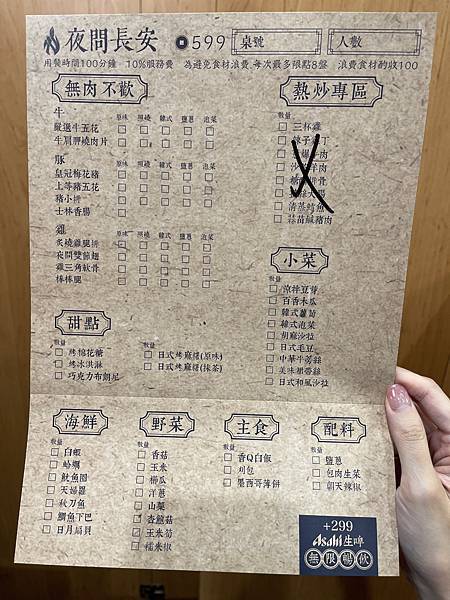 夜問長安 599 桌號 人數
用餐時間100分鐘 10%服務費 為避免食材浪費,每次最多限點8盤 浪費食材酌收100
無肉不歡
牛 原味 照燒 韓式 鹽蔥 泡菜
嚴選牛五花
牛肩胛燒肉片
豚 原味 照燒 韓式 鹽蔥 泡菜
皇冠梅花豬
上等豬五花
豬小排
士林香腸
雞 原味 照燒 韓式 鹽蔥 泡菜
炙燒雞腿排
夜問雙節翅
雞三角軟骨
棒棒腿
熱炒專區
數量
三杯雞
清蒸鱈魚
蒜苗鹹豬肉
小菜
數量
涼拌豆芽
百香木瓜
韓式蘿蔔
韓式泡菜
胡麻沙拉
日式毛豆
中華牛蒡絲
美味裙帶絲
日式和風沙拉
甜點
數量
烤棉花糖
烤冰淇淋
巧克力布朗尼
數量
日式烤麻糬(原味)
日式烤麻糬(抹茶)
海鮮
數量
白蝦
蛤蠣
魷魚圈
天婦羅
秋刀魚
鯛魚下巴
日月扇貝
野菜
數量
香菇
玉米
櫛瓜
洋蔥
山藥
杏鮑菇
玉米筍
糯米椒
主食
數量
香Q白飯
刈包
墨西哥薄餅
配料
數量
鹽蔥
包肉生菜
朝天辣椒
+299
Asahi生啤
無限暢飲